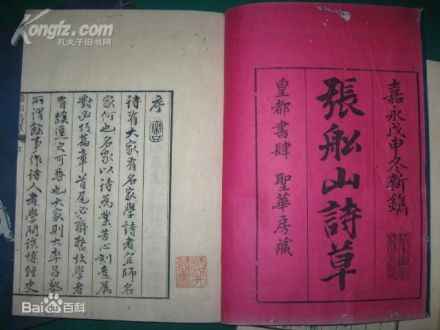 Kongfz.com
孔夫子旧书网
嘉永戊申冬新鐫
張船山詩草
皇都書肆 聖華房藏
序
詩有大家有名家學詩者宜師名
家何也名家以詩為業苦心刻意屬
對必篇章首尾必齊整故學者
有可尋也大家則大率昌黎
所謂餘事作詩人者學問該博經史
Bai百科